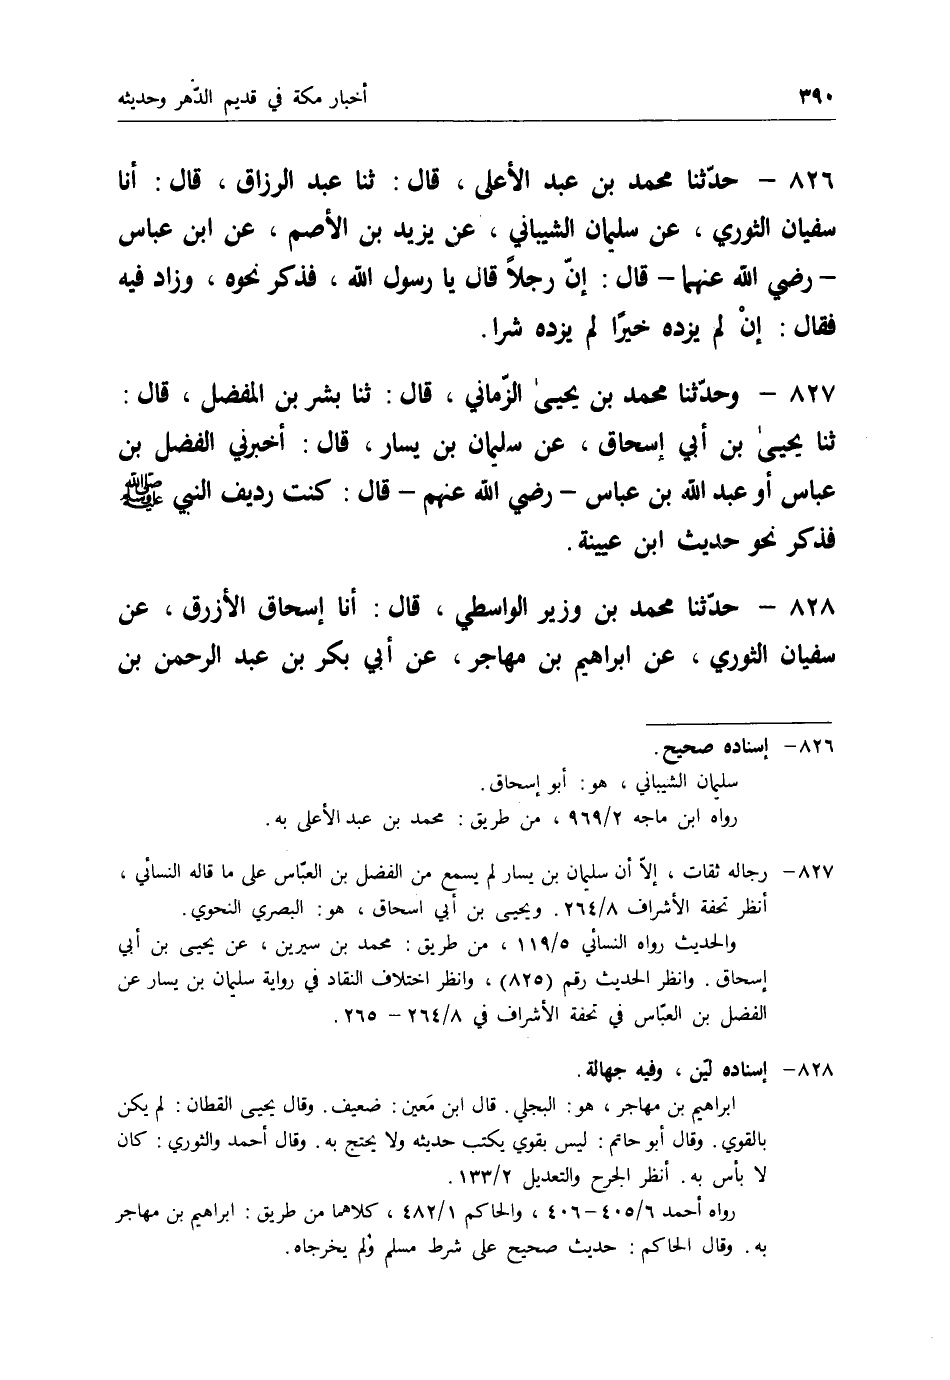 ٣٩٠ أخبار مكة في قديم الدّهر وحديثه
٨٢٦ – حدّثنا محمد بن عبد الأعلى ، قال : ثنا عبد الرزاق ، قال : أنا
سفيان الثوري ، عن سليمان الشيباني ، عن يزيد بن الأصم ، عن ابن عباس
– رضي الله عنهما – قال : إنّ رجلاً قال يا رسول الله ، فذكر نحوه ، وزاد فيه
فقال : إنْ لم يزده خيرًا لم يزده شرا .
٨٢٧ – وحدّثنا محمد بن يحيىٰ الزّماني ، قال : ثنا بشر بن المفضل ، قال :
ثنا يحيىٰ بن أبي إسحاق ، عن سليمان بن يسار ، قال : أخبرني الفضل بن
عباس أو عبد الله بن عباس – رضي الله عنهم – قال : كنت رديف النبي ﷺ
فذكر نحو حديث ابن عيينة .
٨٢٨ – حدّثنا محمد بن وزير الواسطي ، قال : أنا إسحاق الأزرق ، عن
سفيان الثوري ، عن ابراهيم بن مهاجر ، عن أبي بكر بن عبد الرحمن بن
٨٢٦– إسناده صحيح .
سليمان الشيباني ، هو : أبو إسحاق .
رواه ابن ماجه ٩٦٩/٢ ، من طريق : محمد بن عبد الأعلى به .
٨٢٧– رجاله ثقات ، إلاّ أن سليمان بن يسار لم يسمع من الفضل بن العبّاس على ما قاله النسائي ،
أنظر تحفة الأشراف ٢٦٤/٨ . ويحيى بن أبي اسحاق ، هو : البصري النحوي .
والحديث رواه النسائي ١١٩/٥ ، من طريق : محمد بن سيرين ، عن يحيى بن أبي
إسحاق . وانظر الحديث رقم (٨٢٥) ، وانظر اختلاف النقاد في رواية سليمان بن يسار عن
الفضل بن العبّاس في تحفة الأشراف في ٢٦٤/٨ – ٢٦٥ .
٨٢٨– إسناده ليّن ، وفيه جهالة .
ابراهيم بن مهاجر ، هو : البجلي . قال ابن مَعين : ضعيف . وقال يحيى القطان : لم يكن
بالقوي . وقال أبو حاتم : ليس بقوي يكتب حديثه ولا يحتج به . وقال أحمد والثوري : كان
لا بأس به . أنظر الجرح والتعديل ١٣٣/٢ .
رواه أحمد ٤٠٥/٦–٤٠٦ ، والحاكم ٤٨٢/١ ، كلاهما من طريق : ابراهيم بن مهاجر
به . وقال الحاكم : حديث صحيح على شرط مسلم ولم يخرجاه .